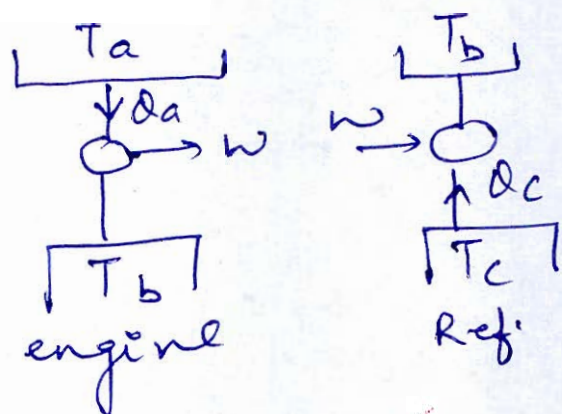 Ta
Qa
W
Tb
engine
Tb
W
Qc
Tc
Ref.